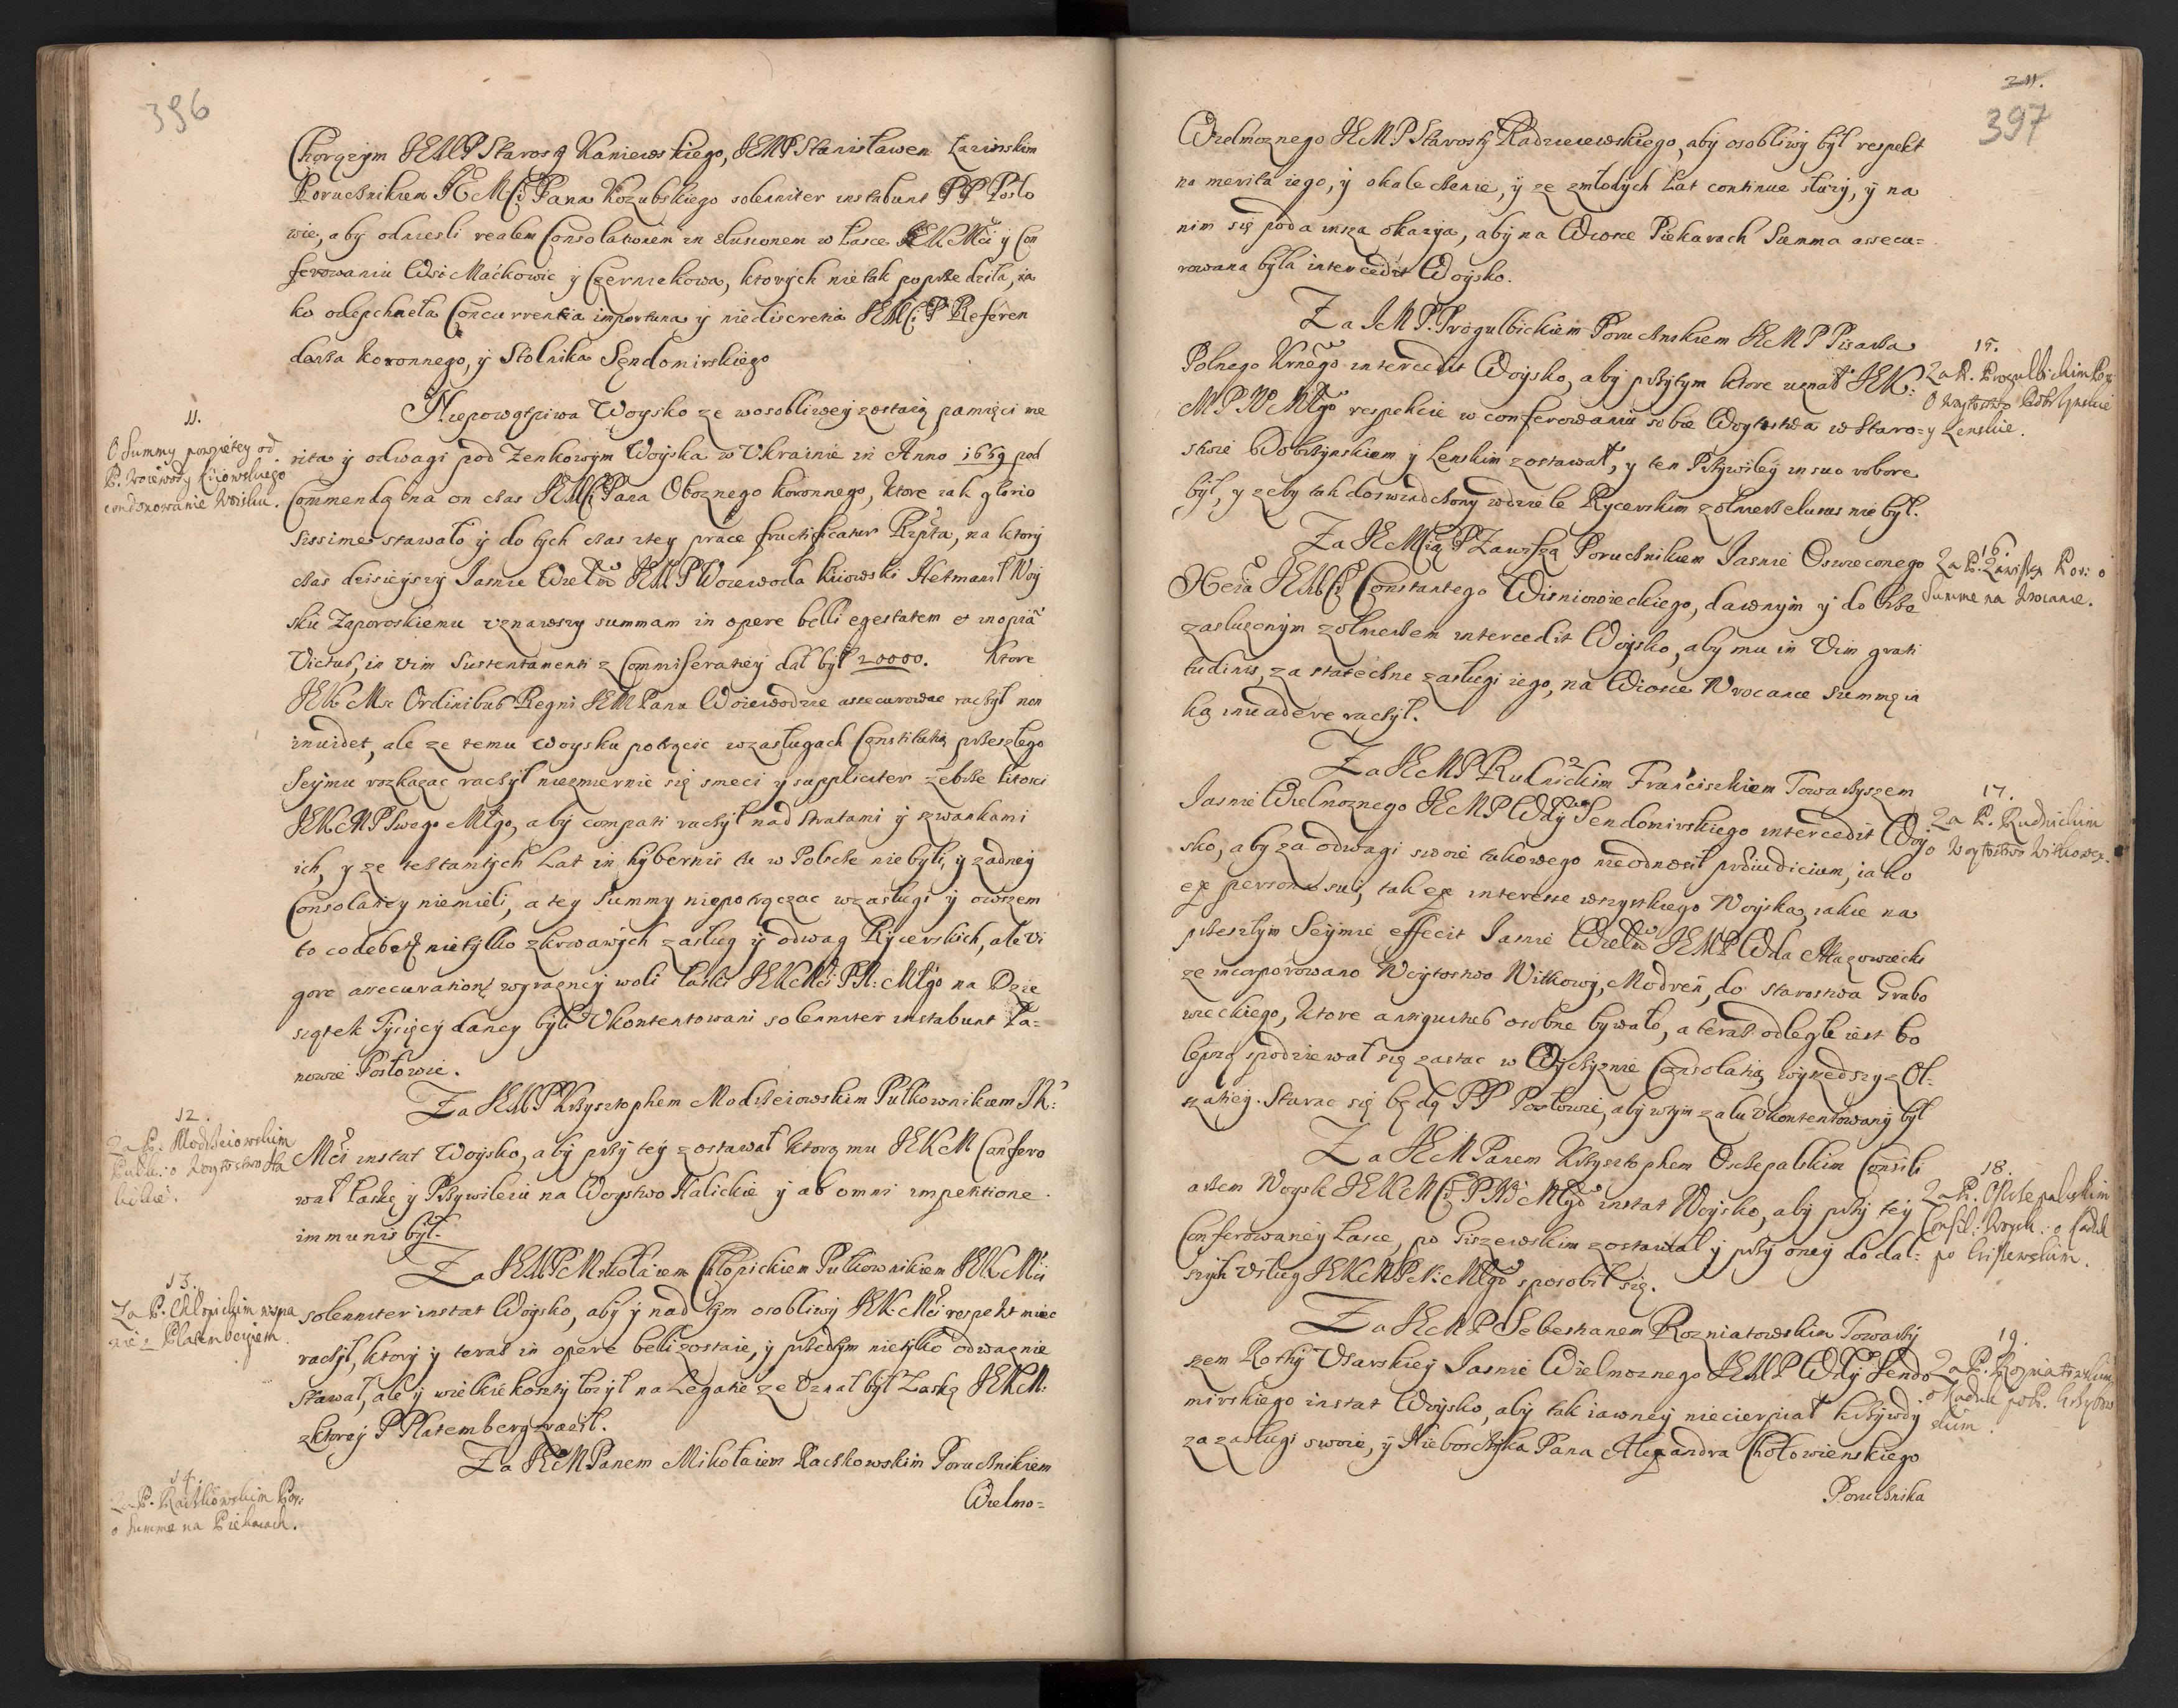 396
Chorązym JEMP Starosty Kaniewskiego, JEMP Stanisławem Łazinskim
Porucznikiem JE Mści Pana Kozubskiego solenniter instabunt PP Posło
wie, aby odniesli realem Consolationem in elusionem w Łasce JEKMści y Con
ferowaniu Wsi Maćkowic y Czerniekowa, ktorych nie tak poprzedziła, ia
ko odepchneła Concurrentia importuna y niediscretia JEMści P Referen
darza Koronnego, y Stolnika Sędomirskiego
11.
O Summy powziętey od
P. Woiewody Kiiowskiego
condonowanie Woisku.
Niepowątpiwa Woysko ze w osobliwey zostaią pamięci me
rita y odwagi pod Zenkowym Woyska w Vkrainie in Anno 1669 pod
Commendą na on czas JEMści Pana Oboznego Koronnego, ktore iak glorio
sissime stawało y do tych czas z tey prace fructificatur Rzpta, na ktory
czas dzisieyszy Jasnie Wielm JEMP Woiewoda Kiiowski Hetmanił Woy
sku Zaporoskiemu vznawszy summam in opere belli egestatem et inopiā
Victus, in vim Sustentamenti z Commiseratiey dał był 20000. Ktore
JEK Msc Ordinibus Regni JEM Panu Woiewodzie assecurowac raczył non
inuidet, ale ze temu woysku potrącic w zasługach Constitutią przeszłego
Seymu rozkazac raczył niezmiernie się smeci y suppliciter żebrze litosci
JEKMP Swego Młgo, aby compati raczył nad stratami y szwankami
ich, y ze testamtych Lat in hybernis tu w Polscze niebyli, y zadney
Consolatiey niemieli, a tey Summy niepotrączac w zasługi y owszem
to co debet nietylko z krwawych zasług y odwag Rycerskich, ale vi
gore assecurationis wyrazney woli łaski JEKMści PN: Młgo na Dzie
siątek Tysięcy daney byli Vkontentowani solenniter instabunt Pa-
nowie Posłowie.
12.
Za P. Modrzeiowskim
Pułk: o Woytostwo Ha
lickie.
Za JEMP Krzysztophem Modrzeiowskim Pułkownikiem JK:
Mści instat Woysko, aby przy tey zostawał ktorą mu JEKM Confero
wał Łaskę y Przywileiu na Woystwo Halickie y ab omni impetitione
immunis był.
13.
Za P. Chłopickim wspa
nie Platembergiem.
Za JEMP Mikołaiem Chłopickiem Pułkownikiem JEKMści
solenniter instat Woysko, aby y nad tym osobliwy JEK:Mści respekt miec
raczył, ktory y teraz in opere belli zostaie, y przedtym nietylko odwaznie
stawał, ale y wielkie koszty łozył na Legatie ze Vznał był Łaskę JEKM:
z ktorey P Platemberg zraził.
14.
Za P. Raczkowskim Por:
o Summe na Piekarach.
Za JEM Panem Mikołaiem Raczkowskim Porucznikiem
Wielmo=
211.
397
Wielmoznego JEMP Starosty Radzieiewskiego, aby osobliwy był respekt
na merita iego, y okaleczenie, y ze zmłodych Lat continue służy, y na
nim się poda insza okazya, aby na Wiosce Piekarach Summa assecu=
rowana była intercedit Woysko.
15.
Za P. Progulbickim Por
O Woytostwo Dobrzynskie
y Lenskie.
Za JMP. Progulbickiem Porucznikiem JEMP Pisarza
Polnego Krnego intercedit Woysko, aby przytym ktore uznał JEK:
MPN Młgo respekcie w conferowaniu sobie Woytostwa w Staro=
stwie Dobrzynskiem y Lenskim zostawał, y ten Przywiley in suo robore
był, y zeby tak doswiadczony w dziele Rycerskim zołnierz elusus nie był.
16.
Za P. Zawiszą Por: o
Summe na Wrocance.
Za JEMścią P Zawiszą Porucznikiem Jasnie Oswieconego
Xcia JEMści Constantego Wisniowieckiego, dawnym y dobrze
zasłuzonym zołnierzem intercedit Woysko, aby mu in Vim grati
tudinis, za stateczne zasługi iego, na Wiosce Wrocance Summę ia
ką inuadere raczył.
17.
Za P. Rudnickim
o Woytostwo Witkowey.
Za JEMP Rudnickim Franciszkiem Towarzyszem
Jasnie Wielmoznego JEMP Wdy Sendomirskiego intercedit Woy
sko, aby za odwagi swoie takowego nieodnosił prżiudicium, iako
ex persona sui, tak ex interesse wszystkiego Woyska, iakie na
przeszłym Seymie effecit Jasnie Wielm JEMP Wda Mazowiecki
ze incorporowano Woytostwo Witkowy, Modryń, do Starostwa Grabo
wieckiego, ktore antiquitus osobne bywało, a teraz odległe iest bo
lepszą spodziewał się zastac w Oyczyznie Consolatią wyszedszy z Ol-
szatiey. Starac się będą PP Posłowie, aby w tym zalu vkontentowany był
18.
Za P. Oskrzepalskim
Consil: Woysk: o Kaduk
po Giszewskim.
Za JEM Panem Krzysztophem Osczepalskim Consili
arzem Woysk JEKMści PN Młgo instat Woysko, aby przy tey
Conferowaney Łasce, po Giszewskim zostawał y przy oney do dal=
szych Vsług JEKMPN: Młgo sposobił się.
19.
Za P. Rozniatowskim
o Kaduk po P. Krzybow
skim.
Za JEMP Sebestianem Rozniatowskim Towarzy
szem Rothy Vsarskiey Jasnie Wielmoznego JEMP Wdy Sendo
mirskiego instat Woysko, aby tak iawney niecierpiał krzywdy
za zasługi swoie, y Nieboszczyka Pana Alexandra Chołowienskiego
Porucznika